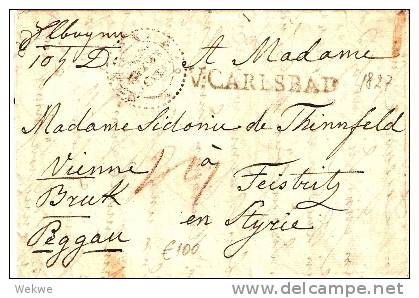 A Madame
V. CARLSBAD
1827
Madame Sidonie de Thinnfeld
Vienne
à
Bruk
Feistritz
Peggau
en Styrie
€100
Wekwe
delcampe.net